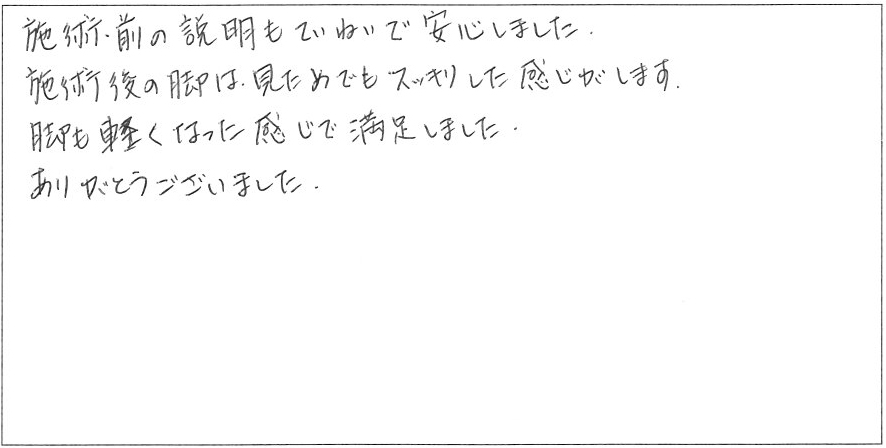 施術前の説明もていねいで安心しました.
施術後の脚は、見ためでもスッキリした感じがします.
脚も軽くなった感じで満足しました.
ありがとうございました.